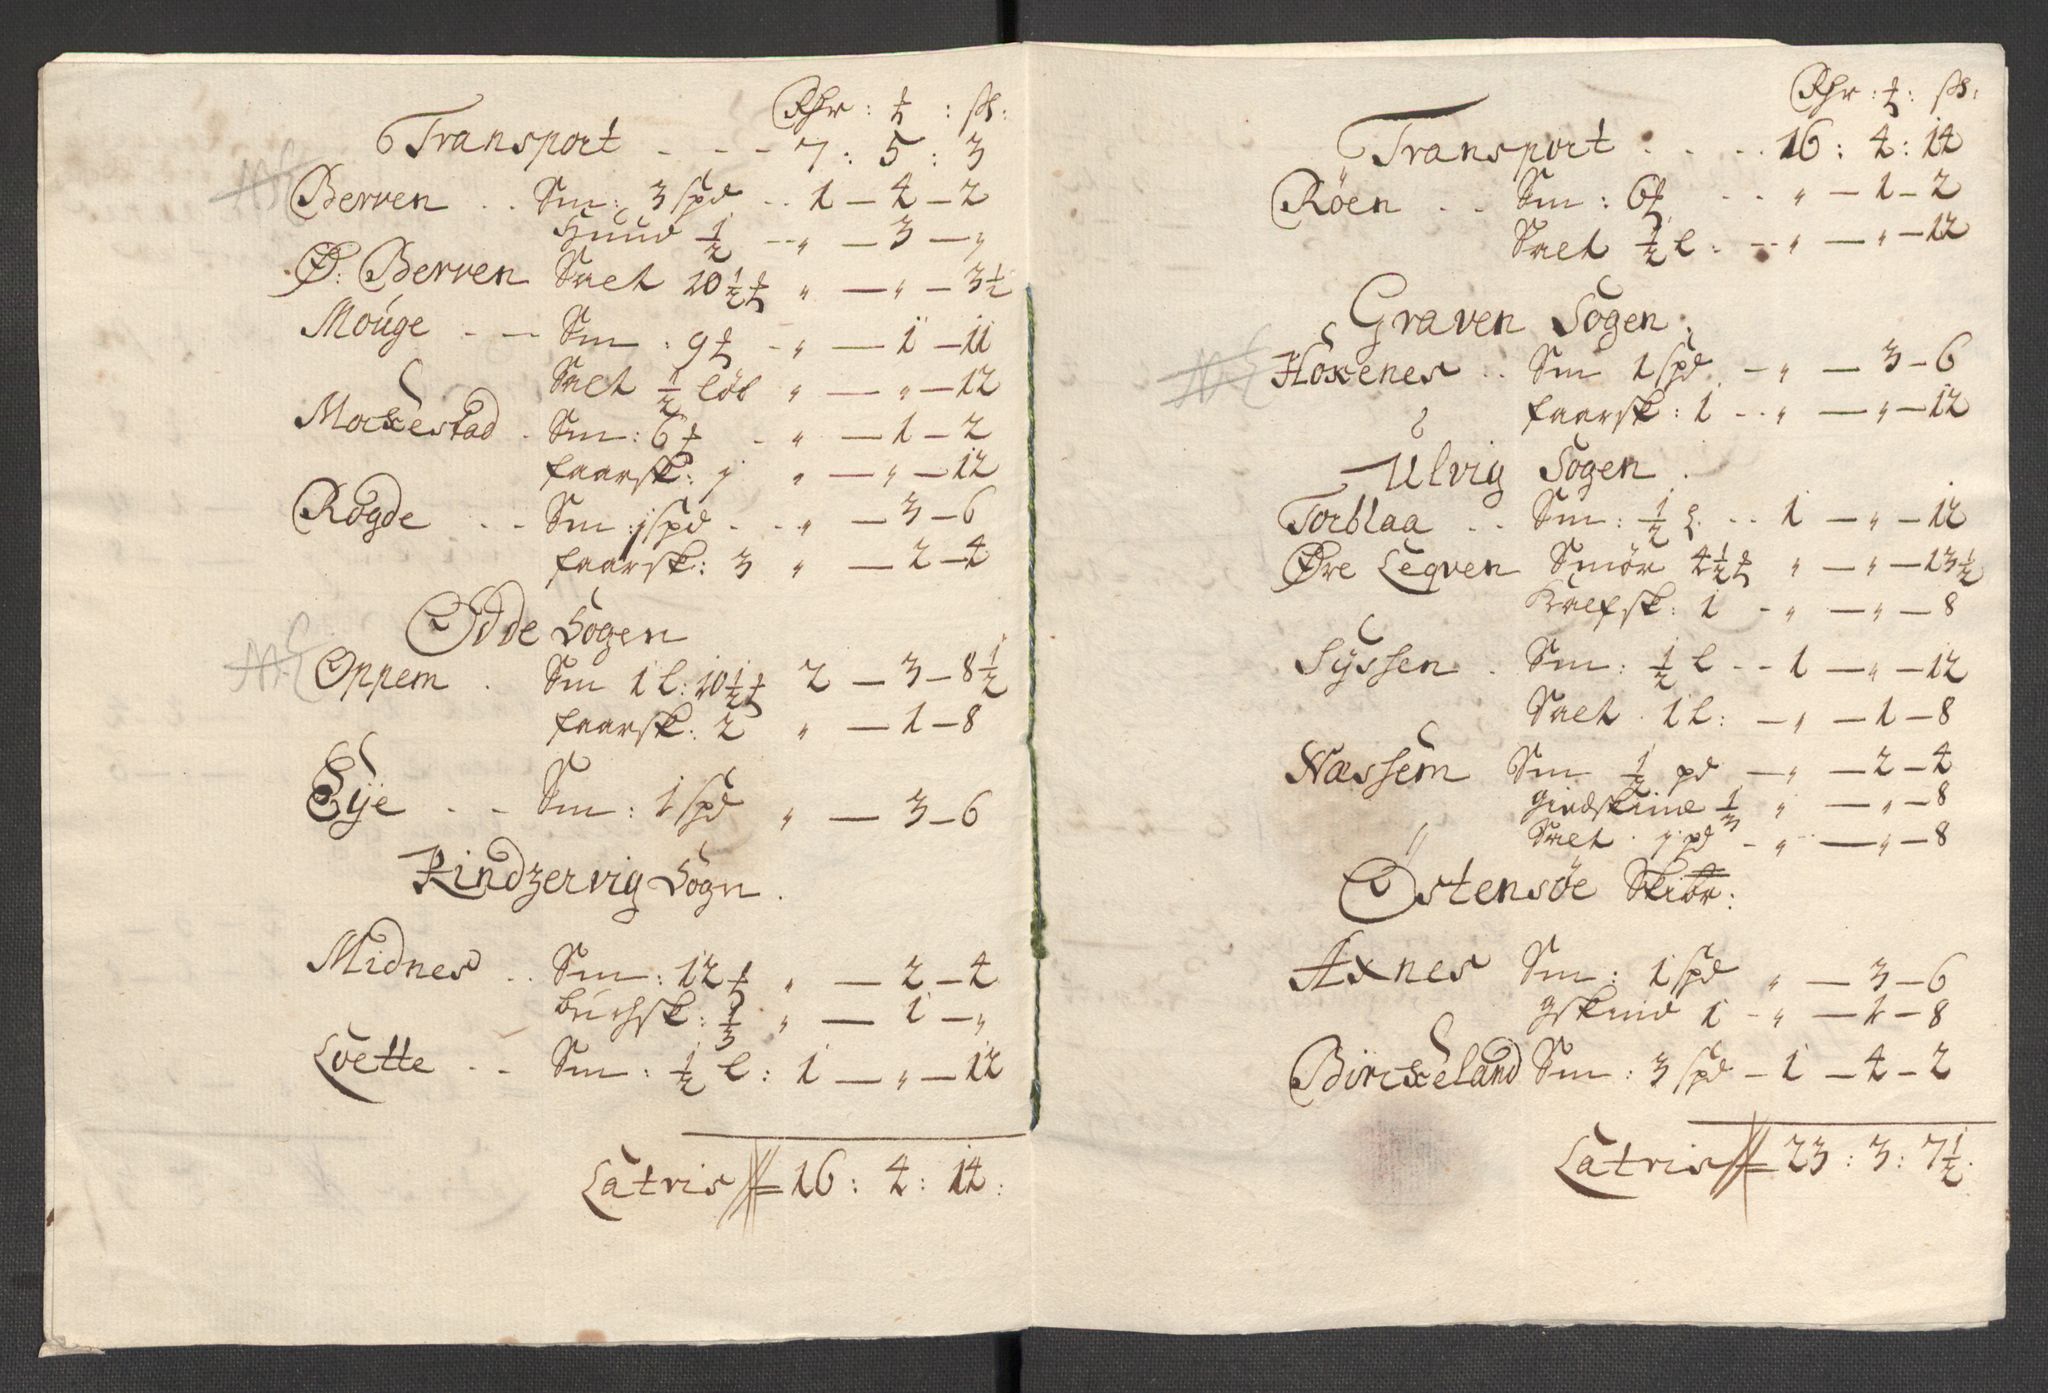 Rdr : ₰ : sk:
Transport - - - 7 : 5 : 3
Berven . . Sm: 3 spd . . 1 — 4 — 2
Huud ½ - - „ — 3 — „
Ø: Berven Salt 10½ ₰ „ — „ — 3½
Mouge - — Sm : 9 ₰ - „ — 1 — 11
Salt ½ löb „ — „ — 12
Mockestad . Sm: 6 ₰ . „ — 1 — 2
faarsk: 1 „ — „ — 12
Rogde . . Sm : 1 spd . . „ — 3 — 6
faarsk: 3 „ — 2 — 4
Odde Sogen
Oppem . Sm 1 l: 10½ ₰ 2 — 3 — 8½
faarsk: 2 „ — 1 — 8
Eÿe . . Sm: 1 spd „ — 3 — 6
Kindzervig Sogn.
Midnes . . Sm: 12 ₰ „ — 2 — 4
buchsk: ⅓ „ — 1 — „
Loette . . Sm: ½ l: 1 — „ — 12
Latris 16 : 4 : 14:
Rdr : ₰ : sk:
Transport . . . . 16 : 4 : 14
Röen . . Sm: 6 ₰ . . „ — 1 — 2
Salt ½ l: — „ — „ — 12
Graven Sogen.
Hoxenes . . Sm 1 spd — „ — 3 — 6
faarsk: 1 . . „ — „ — 12
Ulvig Sogen.
Torblaa . . Sm: ½ l. . . 1 — „ — 12
Øre Leqven Smör 4½ ₰ „ — „ — 13½
Kalfsk: 1 - „ — „ — 8
Sÿssen . Sm: ½ l - - 1 — „ — 12
Salt . 1 l: — „ — 1 — 8
Næssem Sm ½ pd — „ — 2 — 4
giedskind ⅓ „ — „ — 8
Salt . 1 pd - „ — „ — 8
Östensöe Skibr:
Axnes Sm: 1 spd „ — 3 — 6
gskind 1 - „ — 1 — 8
Birckeland Sm: 3 spd — 1 — 4 — 2
Latris 23 : 3 : 7½.